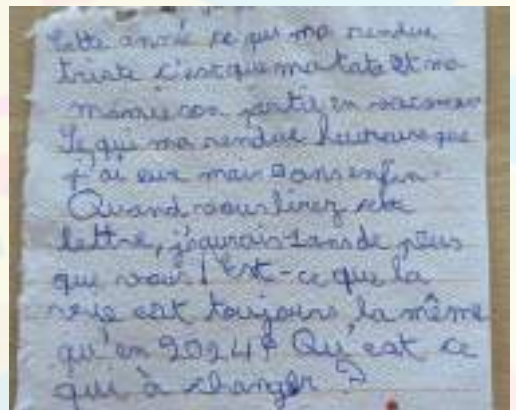 Cette année ce qui ma rendue
triste c'est que ma tata et ma
mamie son partie en vacances
Ce qui ma rendue heureuse que
j'ai eue mais ans enfin.
Quand vous lirez cette
lettre, j'aurais 1 ans de plus
que vous! Est-ce que la
vie est toujours la même
qu'en 2024? Qu'est ce
qui à changer?